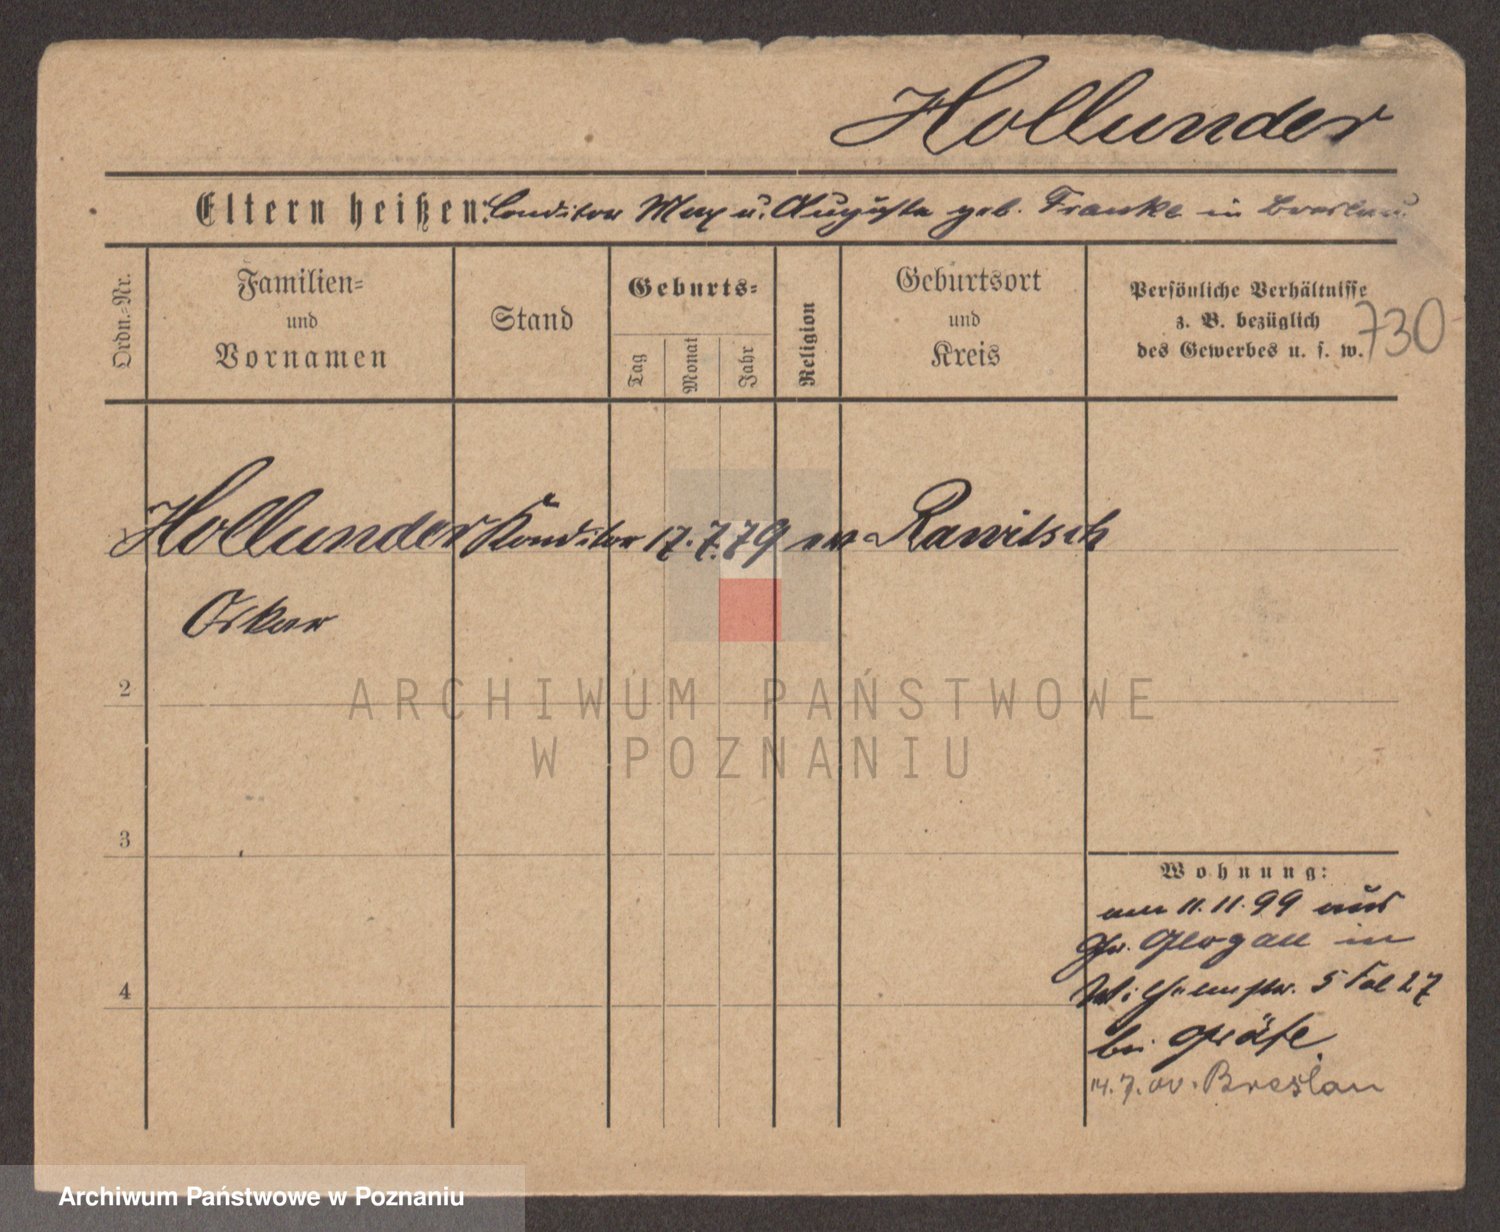 Hollunder
Eltern heißen: Conditor Max u. Auguste geb. Franke in Breslau.
Ordn.-Nr.
Familien-
und
Vornamen
Stand
Geburts-
Tag
Monat
Jahr
Religion
Geburtsort
und
Kreis
Persönliche Verhältnisse
z. B. bezüglich
des Gewerbes u. s. w.
730
Hollunder Konditor 17.7.79 ev Rawitsch
Oskar
2
ARCHIWUM PAŃSTWOWE
W POZNANIU
3
Wohnung:
am 11.11.99 aus
Gr. Glogau in
Wilhelmstr. 5 27
4
bei Gräfe.
14.7.00. Breslau
Archiwum Państwowe w Poznaniu